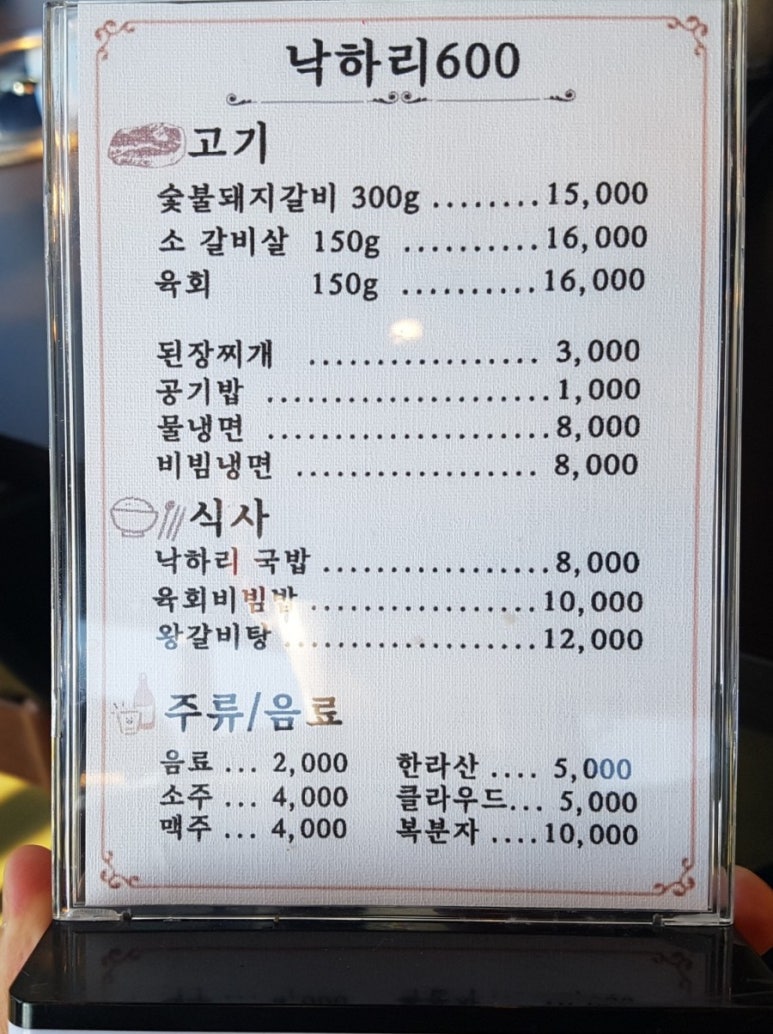 낙하리600
고기
숯불돼지갈비 300g ........15,000
소 갈비살 150g ..........16,000
육회 150g ..........16,000
된장찌개 ................. 3,000
공기밥 .....................1,000
물냉면 .....................8,000
비빔냉면 .................. 8,000
식사
낙하리 국밥 .................8,000
육회비빔밥 .................10,000
왕갈비탕 ...................12,000
주류/음료
음료 ... 2,000 한라산 .... 5,000
소주 ... 4,000 클라우드... 5,000
맥주 ... 4,000 복분자 ....10,000